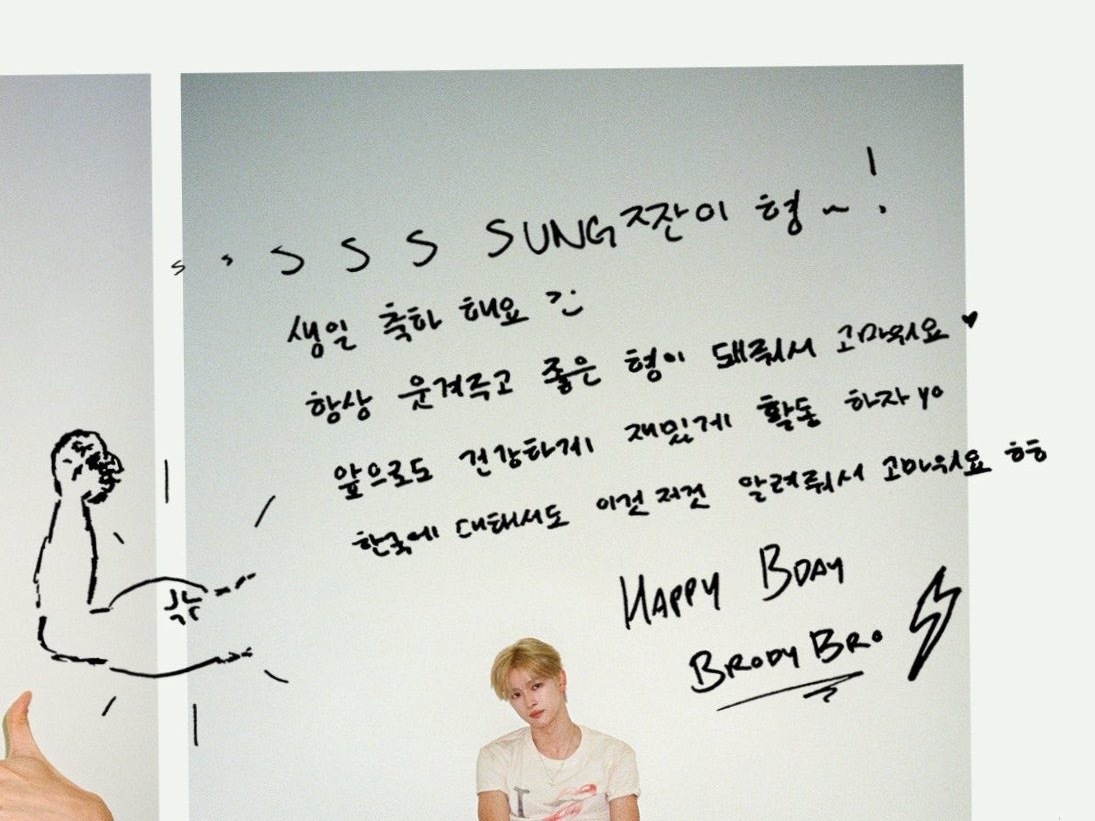 s s S S S SUNG짠이 형~!
생일 축하 해요
항상 웃겨주고 좋은 형이 돼줘서 고마워요 ♥
앞으로도 건강하게 재밌게 활동 하자 yo
한국에 대해서도 이것 저것 알려줘서 고마워요 ㅎㅎ
HAPPY BDAY
BRODY BRO
I